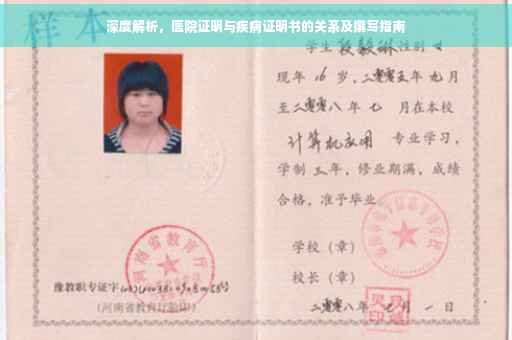 深度解析，医院证明与疾病证明书的关系及撰写指南
样本
学生段毅琳性别女
现年16岁，二零零五年九月
至二零零八年七月在本校
计算机应用 专业学习，
学制三年，修业期满，成绩
合格，准予毕业
学校（章）
校长（章）
二零零八年七月一日
河南省教育厅
豫教职专证字
（河南省教育厅验印）